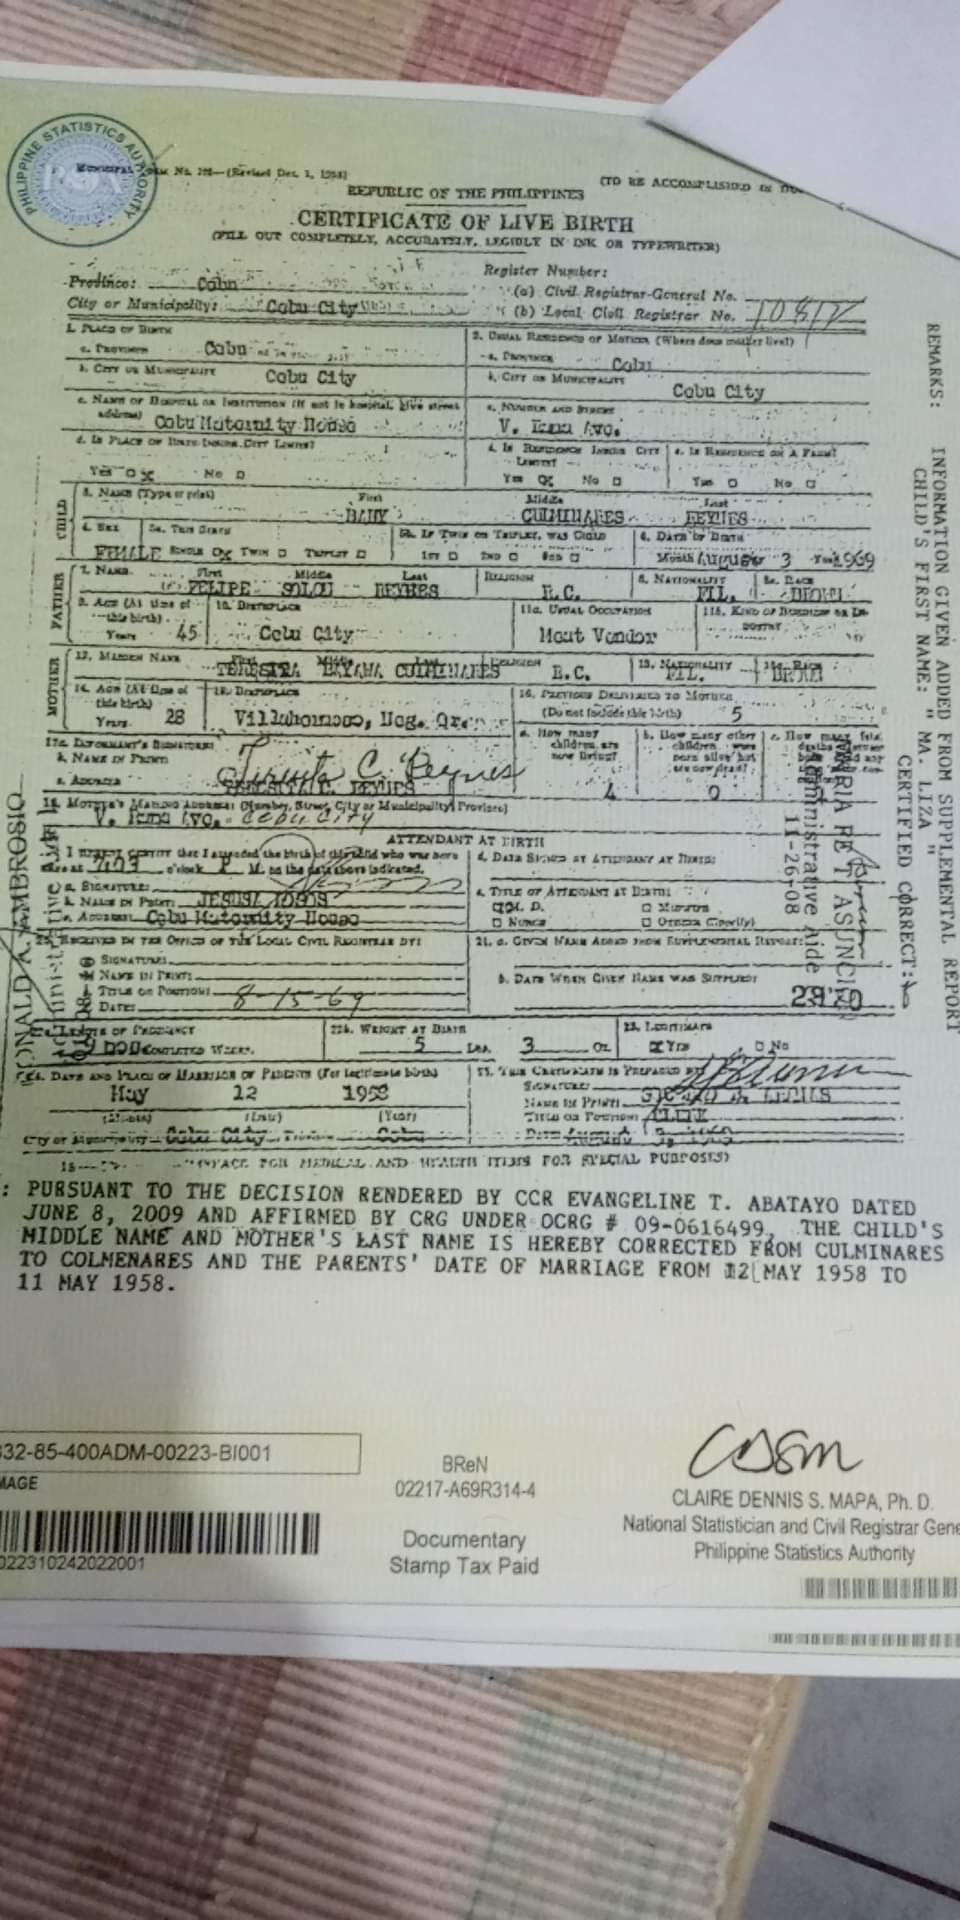 PHILIPPINE STATISTICS AUTHORITY
(Revised Dec. 1, 1958)
(TO BE ACCOMPLISHED IN
REPUBLIC OF THE PHILIPPINES
CERTIFICATE OF LIVE BIRTH
(FILL OUT COMPLETELY, ACCURATELY, LEGIBLY IN INK OR TYPEWRITER)
Province: Cebu
City or Municipality: Cebu City
Register Number:
(a) Civil Registrar-General No.
(b) Local Civil Registrar No.
1. PLACE OF BIRTH
a. PROVINCE Cebu
b. CITY OR MUNICIPALITY Cebu City
c. NAME OF HOSPITAL OR INSTITUTION (If not in hospital, give street address)
Cebu Maternity House
d. IS PLACE OF BIRTH INSIDE CITY LIMITS?
Yes No
2. USUAL RESIDENCE OF MOTHER (Where does mother live?)
a. PROVINCE Cebu
b. CITY OR MUNICIPALITY Cebu City
c. NUMBER AND STREET
V. Rama Ave.
d. IS RESIDENCE INSIDE CITY LIMITS?
Yes No
e. IS RESIDENCE ON A FARM?
Yes No
CHILD
3. NAME (Type or print) First Middle Last
BABY CULMINARES REYNES
4. SEX FEMALE
5a. THIS BIRTH
SINGLE TWIN TRIPLET
5b. IF TWIN OR TRIPLET, WAS CHILD
1ST 2ND 3RD
6. DATE OF BIRTH
Month August 3 Year 1969
FATHER
7. NAME First Middle Last
FELIPE SOLON REYNES
RELIGION R.C.
8. NATIONALITY FIL.
8a. RACE BROWN
9. AGE (At time of this birth)
Years 45
10. BIRTHPLACE
Cebu City
11a. USUAL OCCUPATION
Meat Vendor
11b. KIND OF BUSINESS OR INDUSTRY
MOTHER
12. MAIDEN NAME First Middle Last
CULMINARES
RELIGION R.C.
13. NATIONALITY FIL.
RACE BROWN
14. AGE (At time of this birth)
Years 28
15. BIRTHPLACE
Villahermosa, Neg. Or.
16. PREVIOUS DELIVERIES TO MOTHER
(Do not include this birth) 5
a. How many children are now living? 4
b. How many other children were born alive but are now dead? 0
17a. INFORMANT'S SIGNATURE:
Teresita C. Reynes
b. NAME IN PRINT:
TERESITA C. REYNES
c. ADDRESS
18. MOTHER'S MAILING ADDRESS: (Number, Street, City or Municipality, Province)
V. Rama Ave. Cebu City
ATTENDANT AT BIRTH
I HEREBY CERTIFY that I attended the birth of this child who was born
alive at 7:03 o'clock P M. on the date above indicated.
a. SIGNATURE:
b. NAME IN PRINT: JESUSA
c. ADDRESS: Cebu Maternity House
d. DATE SIGNED BY ATTENDANT AT BIRTH:
e. TITLE OF ATTENDANT AT BIRTH:
M. D. MIDWIFE
NURSE OTHER (Specify)
20. RECEIVED IN THE OFFICE OF THE LOCAL CIVIL REGISTRAR BY:
SIGNATURE:
NAME IN PRINT:
TITLE OR POSITION:
DATE: 8-15-69
21. a. GIVEN NAME ADDED FROM SUPPLEMENTAL REPORT:
b. DATE WHEN GIVEN NAME WAS SUPPLIED:
LENGTH OF PREGNANCY
COMPLETED WEEKS.
22b. WEIGHT AT BIRTH
5 Lbs. 3 Oz.
23. LEGITIMATE
Yes No
24. DATE AND PLACE OF MARRIAGE OF PARENTS (For legitimate birth)
May 12 1958
(Month) (Date) (Year)
City or Municipality Cebu City Province Cebu
25. THIS CERTIFICATE IS PREPARED BY
SIGNATURE:
NAME IN PRINT:
TITLE OR POSITION: CLERK
DATE
(SPACE FOR MEDICAL AND HEALTH ITEMS FOR SPECIAL PURPOSES)
: PURSUANT TO THE DECISION RENDERED BY CCR EVANGELINE T. ABATAYO DATED
JUNE 8, 2009 AND AFFIRMED BY CRG UNDER OCRG # 09-0616499, THE CHILD'S
MIDDLE NAME AND MOTHER'S LAST NAME IS HEREBY CORRECTED FROM CULMINARES
TO COLMENARES AND THE PARENTS' DATE OF MARRIAGE FROM 12 MAY 1958 TO
11 MAY 1958.
REMARKS: INFORMATION GIVEN ADDED FROM SUPPLEMENTAL REPORT
CHILD'S FIRST NAME: " MA. LIZA "
CERTIFIED CORRECT:
ASUNCION
Administrative Aide
11-26-08
AMBROSIO
332-85-400ADM-00223-BI001
MAGE
022310242022001
BReN
02217-A69R314-4
Documentary
Stamp Tax Paid
CDSM
CLAIRE DENNIS S. MAPA, Ph. D.
National Statistician and Civil Registrar Gene
Philippine Statistics Authority